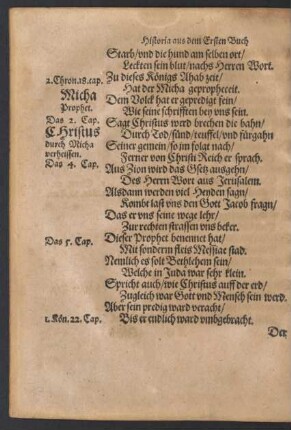 Historia aus dem Ersten Buch
Starb/vnd die hund am selben ort/
Leckten sein blut/nachs Herren Wort.
2. Chron. 18. cap.
Zu dieses Königs Ahab zeit/
Micha
Prophet.
Hat der Micha gepropheceit.
Dem Volck hat er gepredigt fein/
Wie seine schrifften bey vns sein.
Das 2. Cap.
Sagt Christus werd brechen die bahn/
CHristus
durch Micha
verheissen.
Durch Tod/sünd/teuffel/vnd fürgahn
Seiner gemein/so im folgt nach/
Ferner von Christi Reich er sprach.
Das 4. Cap.
Aus Zion wird das Gsetz ausgehn/
Des Herrn Wort aus Jerusalem.
Alsdann werden viel Heyden sagn/
Kombt last vns den Gott Jacob fragn/
Das er vns seine wege lehr/
Zur rechten strassen vns beker.
Das 5. Cap.
Dieser Prophet benennet hat/
Mit sonderm fleis Messiae stad.
Nemlich es solt Bethlehem sein/
Welche in Juda war sehr klein.
Spricht auch/wie Christus auff der erd/
Zugleich war Gott vnd Mensch sein werd.
Aber sein predig ward veracht/
1. Kön. 22. Cap.
Bis er endlich ward vmbgebracht.
Der